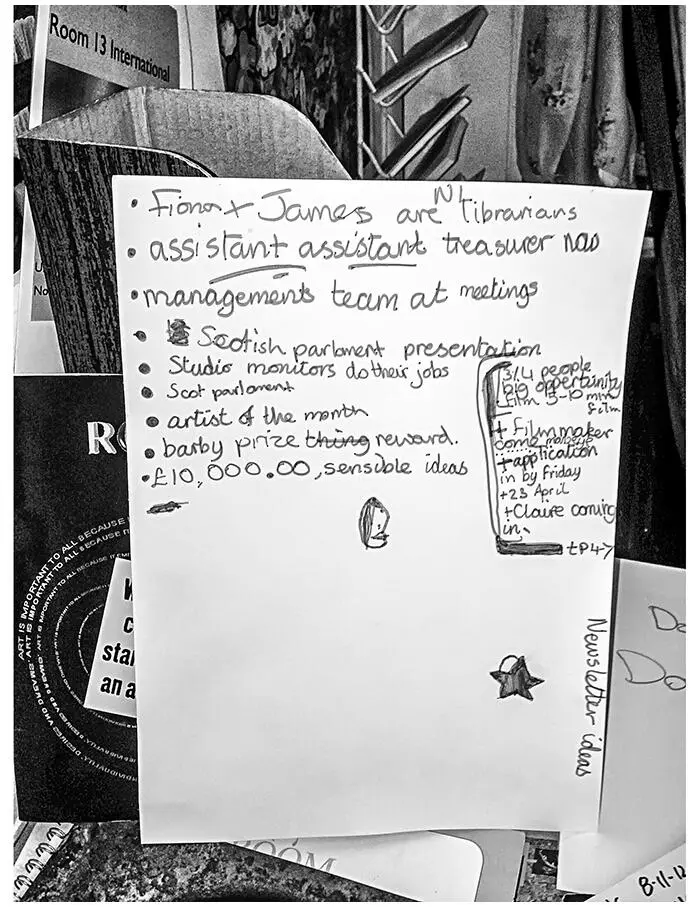 Room 13 International
• Fiona + James are N1 librarians
• assistant assistant treasurer now
• managements team at meetings
• Scotish parlment presentation
• Studio monitors do their jobs
• Scot parlament
• artist of the month
• barby prize thing reward.
• £10,000.00, sensible ideas
3/4 people
big oppertunity
film 5-10 min
film
+ Filmmaker
come
+ application
in by Friday
+23 April
+Claire coming
in.
tP47
Newsletter ideas
Do
ART IS IMPORTANT TO ALL BECAUSE
ART IS IMPORTANT TO ALL BECAUSE
sta
an a
OOM
8-11-12